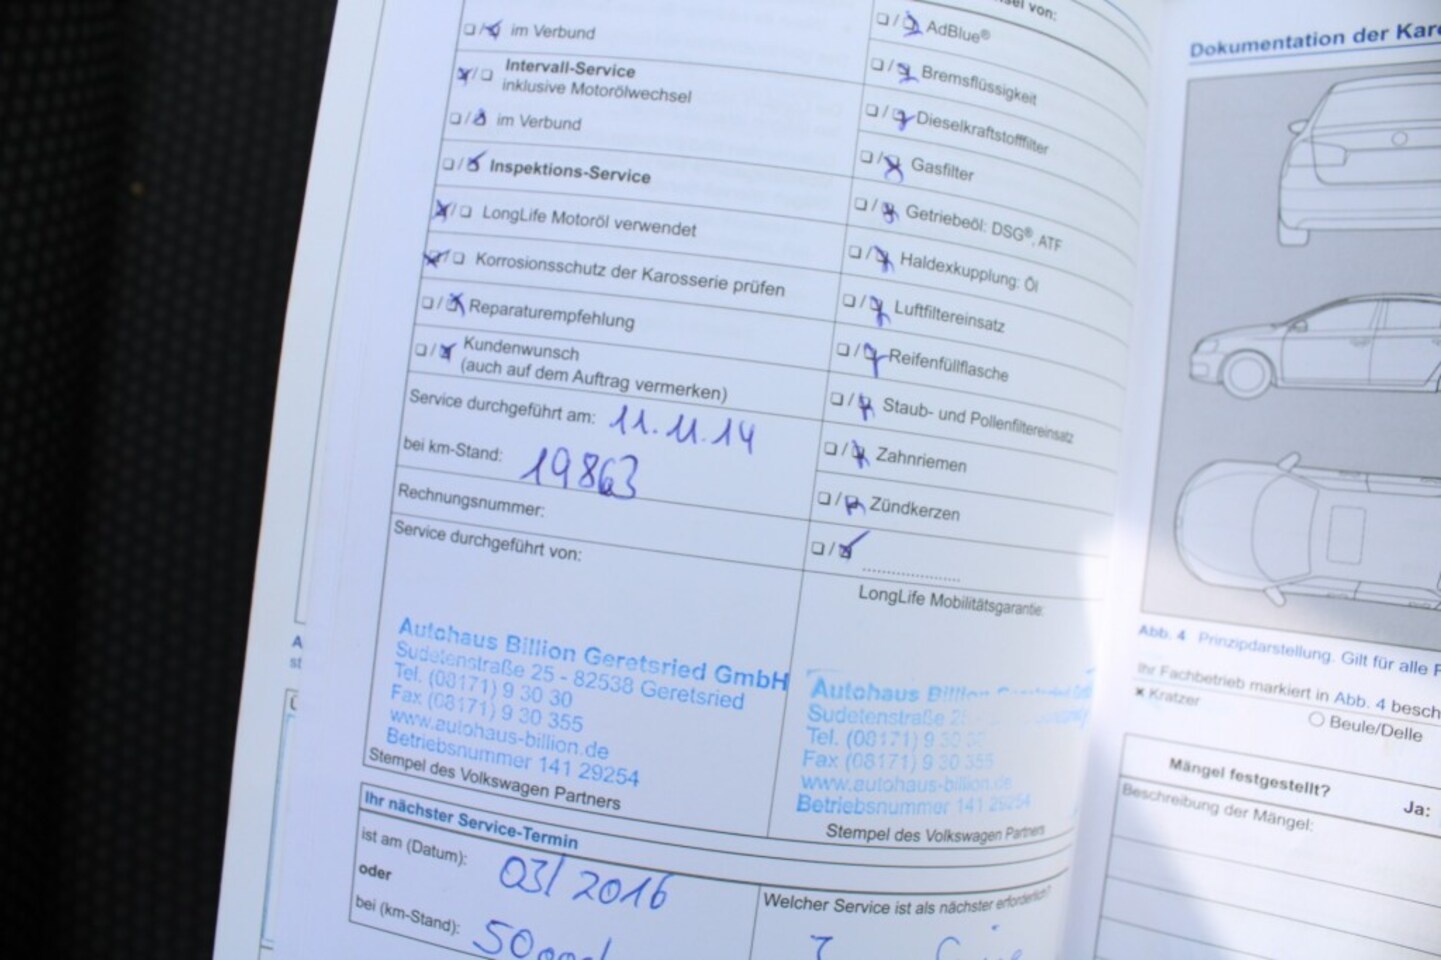 im Verbund
Intervall-Service
inklusive Motorölwechsel
im Verbund
Inspektions-Service
LongLife Motoröl verwendet
Korrosionsschutz der Karosserie prüfen
Reparaturempfehlung
Kundenwunsch
(auch auf dem Auftrag vermerken)
Service durchgeführt am: 11.11.14
bei km-Stand: 19863
Rechnungsnummer:
Service durchgeführt von:
Autohaus Billion Geretsried GmbH
Sudetenstraße 25 - 82538 Geretsried
Tel. (08171) 9 30 30
Fax (08171) 9 30 355
www.autohaus-billion.de
Betriebsnummer 141 29254
Stempel des Volkswagen Partners
Ihr nächster Service-Termin
ist am (Datum): 03/2016
oder
bei (km-Stand):
von:
AdBlue®
Bremsflüssigkeit
Dieselkraftstofffilter
Gasfilter
Getriebeöl: DSG®, ATF
Haldexkupplung: Öl
Luftfiltereinsatz
Reifenfüllflasche
Staub- und Pollenfiltereinsatz
Zahnriemen
Zündkerzen
LongLife Mobilitätsgarantie:
Autohaus Billion
Sudetenstraße
Tel. (08171) 9 30
Fax (08171) 9 30 355
www.autohaus-billion.de
Betriebsnummer 141 29254
Stempel des Volkswagen Partners
Welcher Service ist als nächster erforderlich?
Dokumentation der
Abb. 4 Prinzipdarstellung. Gilt für alle
Ihr Fachbetrieb markiert in Abb. 4
× Kratzer
Beule/Delle
Mängel festgestellt? Ja:
Beschreibung der Mängel: